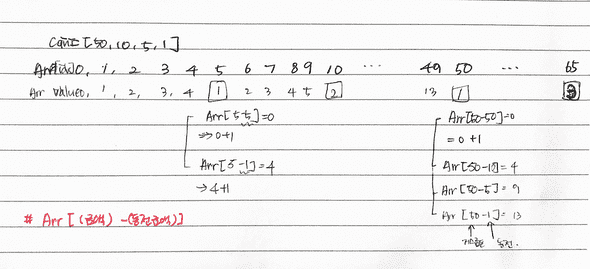 Coin = [50, 10, 5, 1]
Arr idx 0, 1, 2 3 4 5 6 7 8 9 10 ... 49 50 ... 65
Arr value 0, 1, 2, 3, 4 1 2 3 4 5 2 13 1 3
Arr[5-5]=0 Arr[50-50]=0
=> 0+1 = 0+1
Arr[5-1]=4 Arr[50-10]=4
→ 4+1 Arr[50-5]=9
# Arr[(금액)-(동전금액)] Arr[50-1]=13
동전.